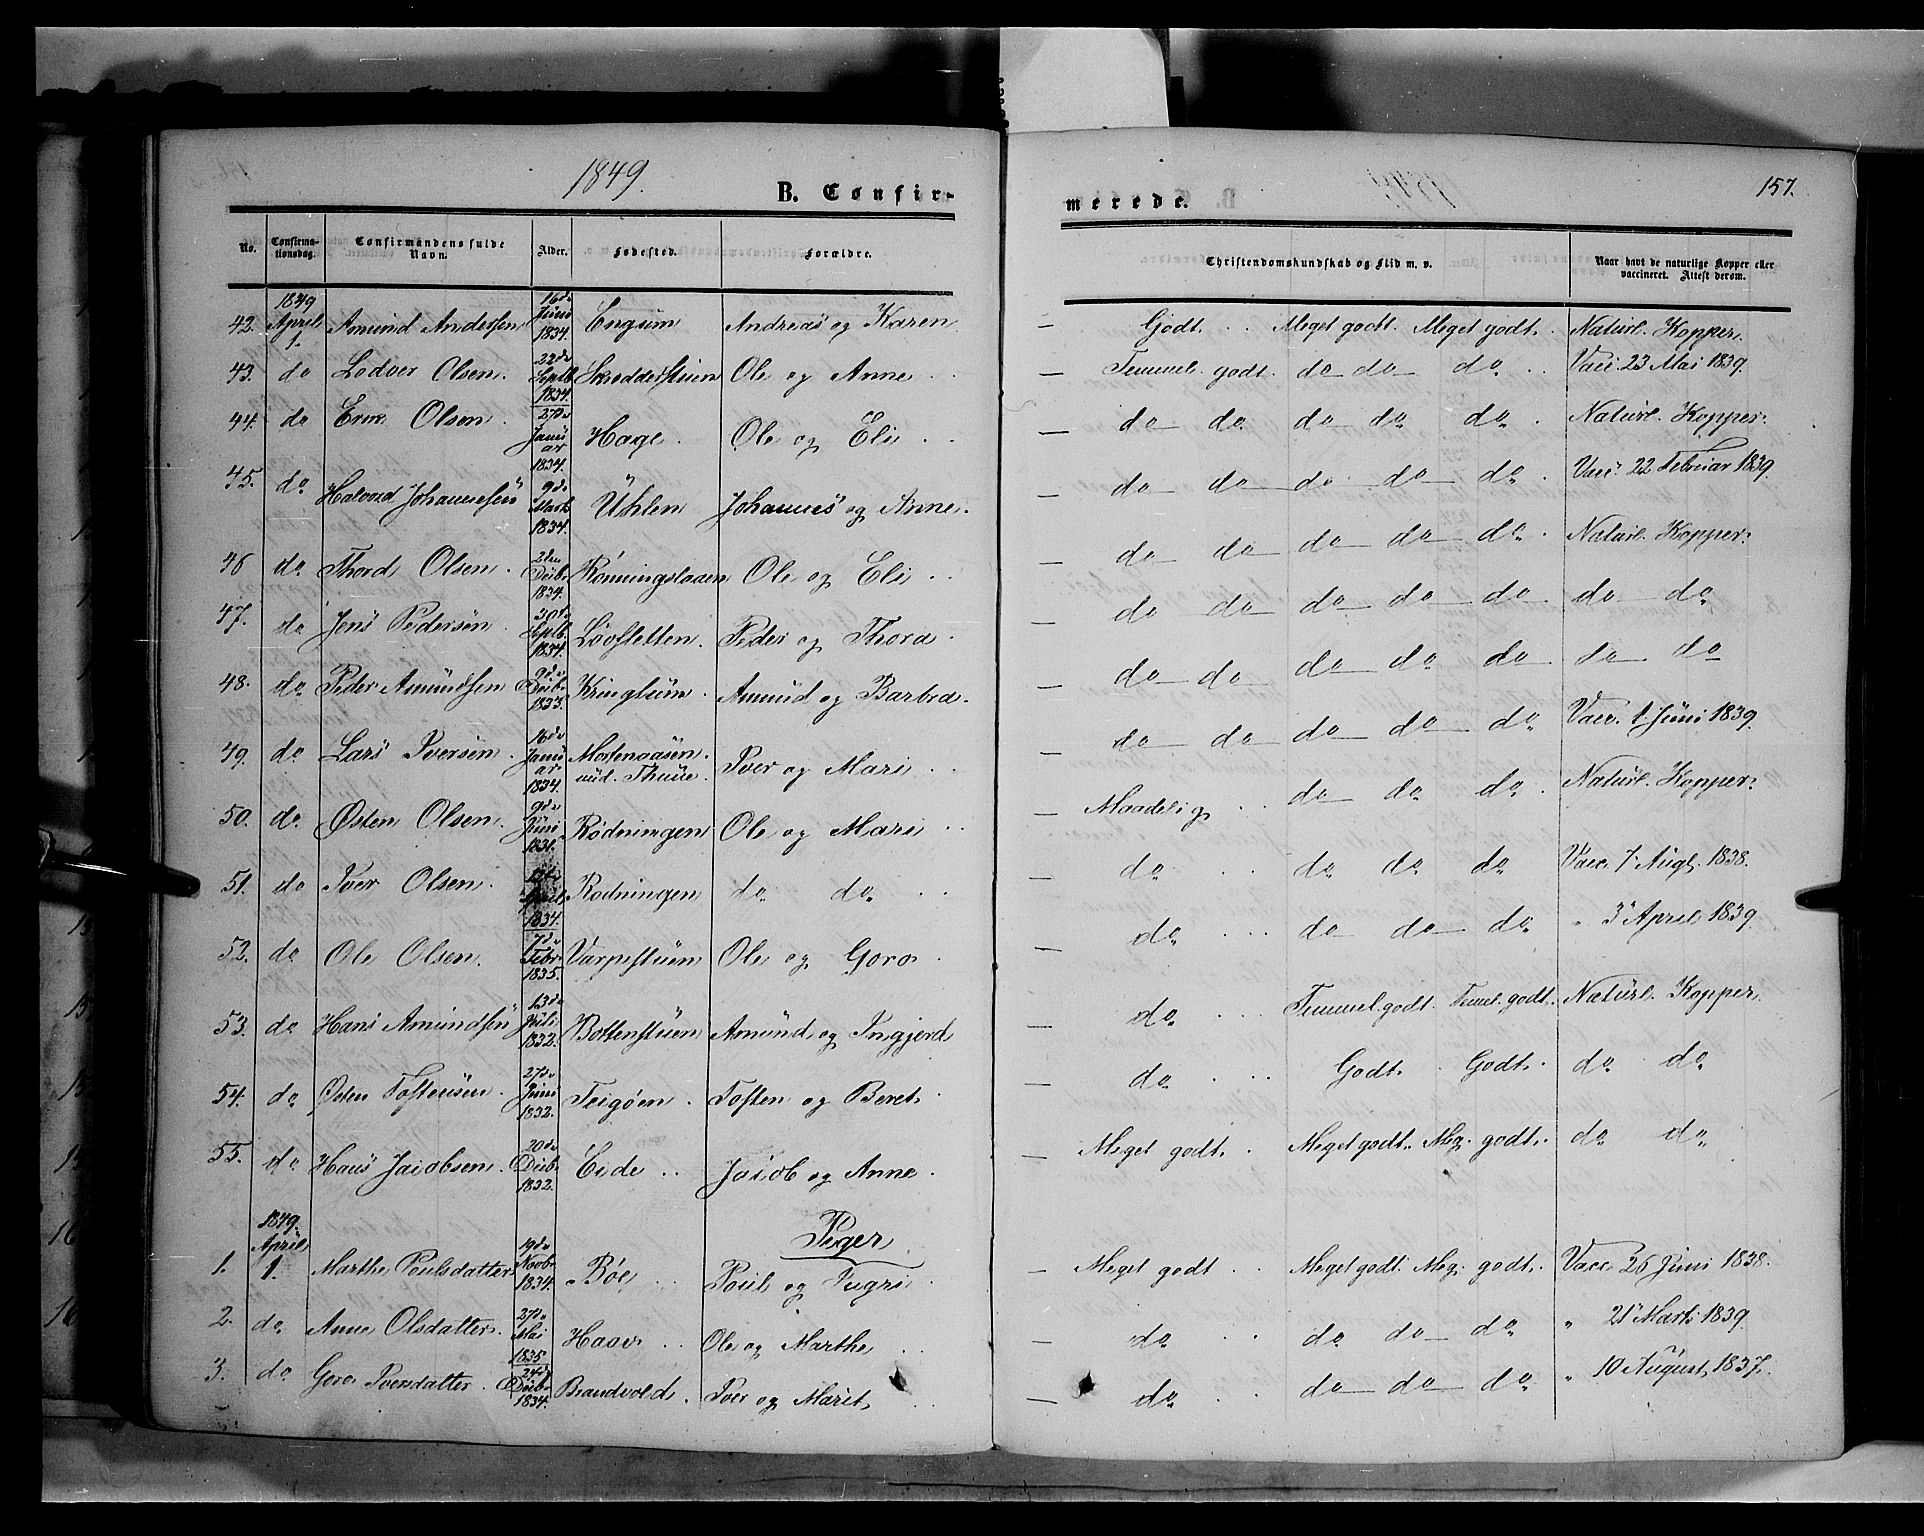 1849.
B. Confir-
merede.
157.
No. Confirma-tionsdag. Confirmandens fulde Navn. Alder. Fødested. Forældre. Christendomskundskab og Flid m. v. Naar havt de naturlige Kopper eller vaccineret. Attest derom.
42. 1849 April 1. Amund Andersen 16de Juni 1834. Engum Andreas og Karen — Godt. Meget godt. Meget godt. Naturl. Kopper.
43. do Lodver Olsen. 22de Septb 1834. Skredderstuen Ole og Anne — Temmel. godt. do do do Vacc. 23 Mai 1839.
44. do Erik Olsen 27de Januar 1834. Hage. Ole og Eli — do do do do do Naturl. Kopper.
45. do Halvord Johannesen 9de Marts 1834. Uhlen Johannes og Anne. — do do do do do Vacc. 22 Februar 1839.
46 do Thord Olsen. 2den Decb. 1834. Rønningslaaen Ole og Eli — do do do do do Naturl. Kopper.
47. do Jens Pedersen 30de Septb. 1834. Løvsletten. Peder og Thora — do do do do do do do
48. do Peder Amundsen 9de Decb. 1833. Kringlum. Amund og Barbra. — do do do do do do do
49. do Lars Iversen. 16de Januar 1834. Mortenaasen und. Thune. Iver og Mari — do do do do do Vacc. 1 Juni 1839.
50. do Østen Olsen. 9de Juni 1831. Rødningen Ole og Mari — Maadelig do do do Naturl. Kopper.
51. do Iver Olsen. April 1834. Rødningen do do — do do do do Vacc. 7 Augt. 1838.
52. do Ole Olsen. 7de Febr. 1835. Varpestuen Ole og Goro — do do do do " 3 April 1839.
53. do Hans Amundsen 13de Juli 1832. Bottenstuen Amund og Ingjerd — do Temmel. godt. Temmel. godt. Naturl. Kopper.
54. do Østen Tostensen. 27de Juni 1832. Teigøen. Tosten og Beret. — do Godt. Godt. do do
55. do Hans Jacobsen 20de Decb. 1832. Eide Jacob og Anne — Meget godt. Meget godt. Meg. godt. do do
Piger
1. 1849. April 1. Marthe Poulsdatter 19de Novb. 1834. Bøe Poul og — Meget godt Meget godt. Meg. godt. Vacc. 26 Juni 1838.
2. do Anne Olsdatter. 27de Mai 1835 Haave Ole og Marthe — do do do do " 21 Marts 1839.
3. do Goro Iversdatter. 24de Decb. 1834. Brandvold. Iver og Marit — do do do do " 10 August 1837.